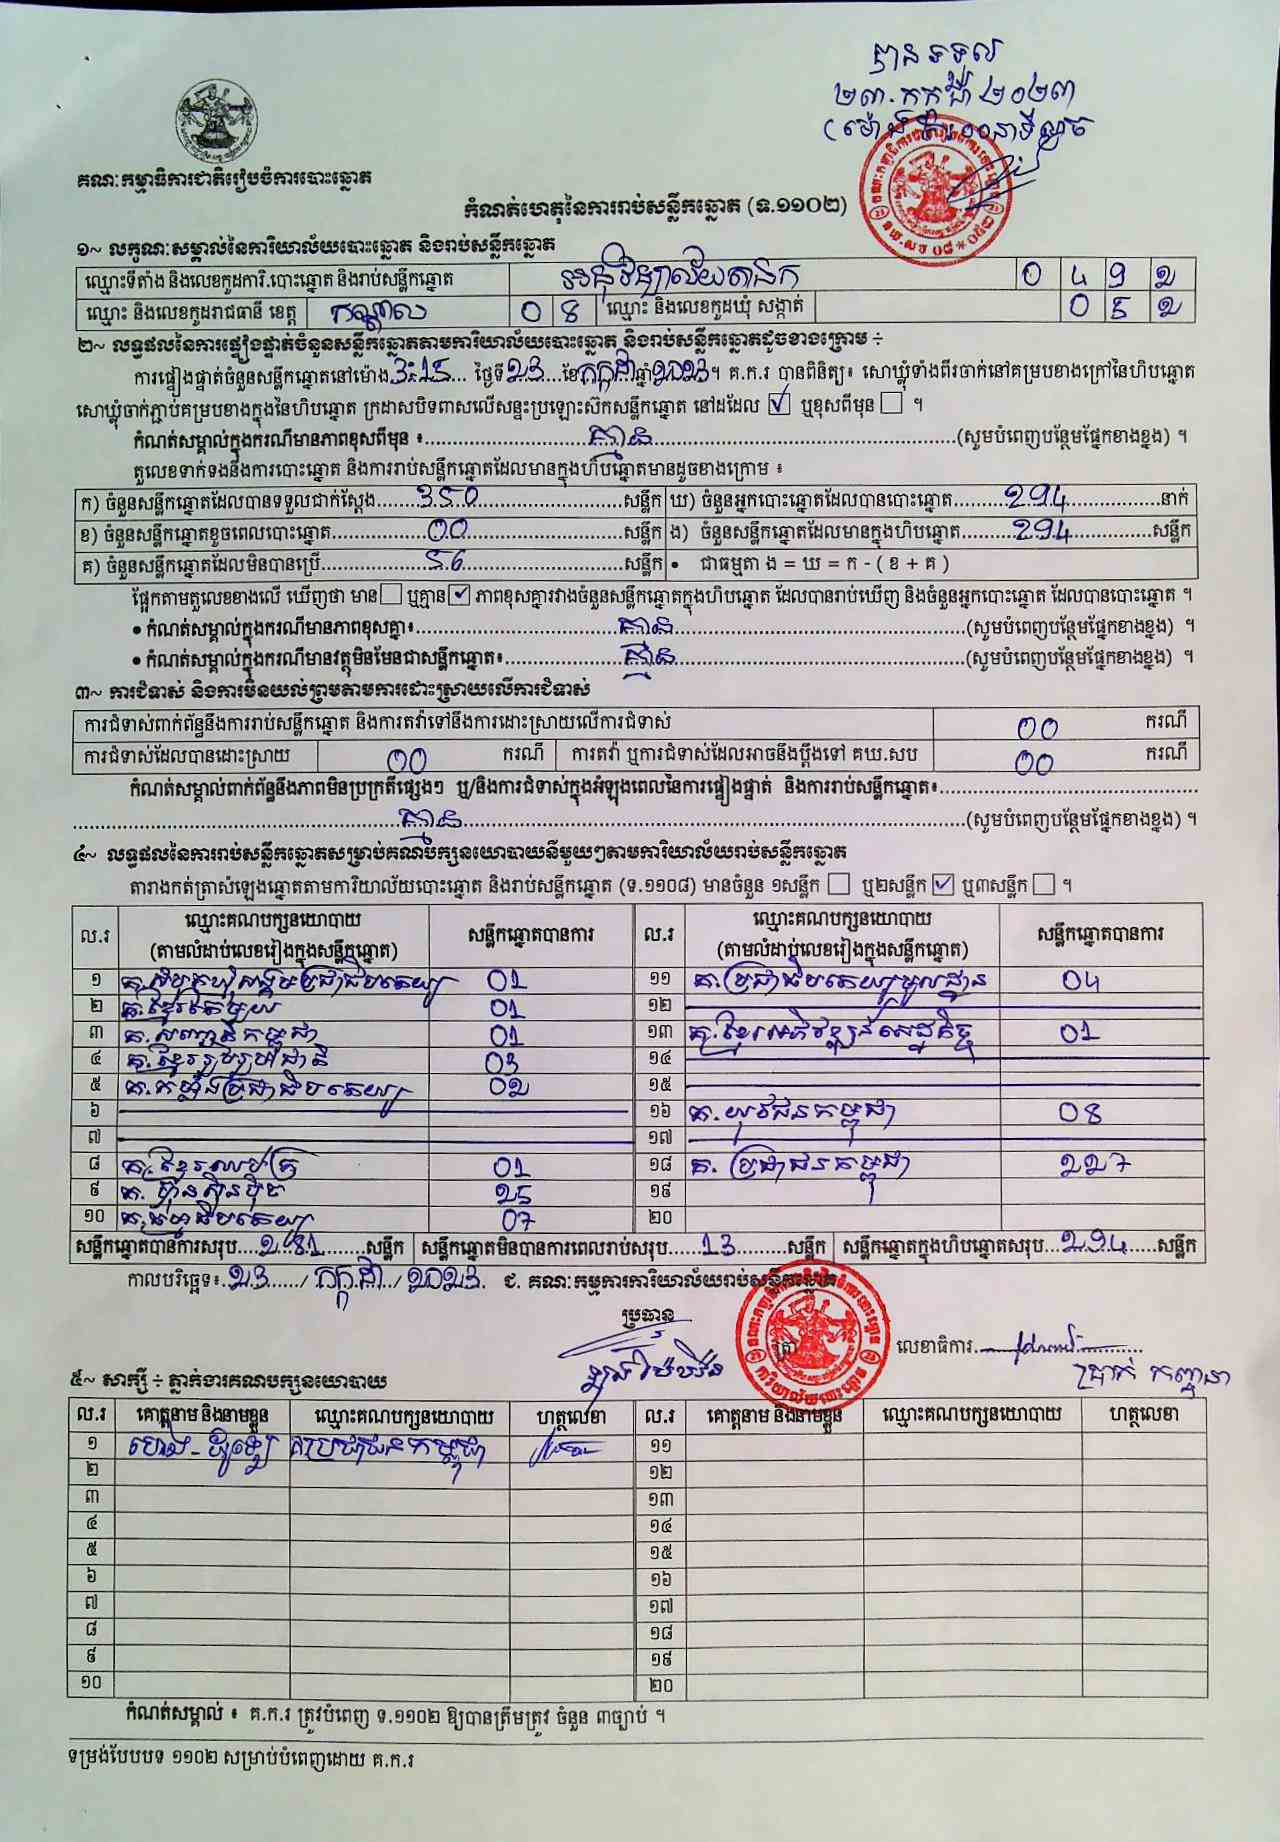 បានទទួល
២៣.កក្កដា ២០២៣
គណៈកម្មាធិការជាតិរៀបចំការបោះឆ្នោត
កំណត់ហេតុនៃការរាប់សន្លឹកឆ្នោត (ទ.១១០២)
១~ លក្ខណៈសម្គាល់នៃការិយាល័យបោះឆ្នោត និងរាប់សន្លឹកឆ្នោត
ឈ្មោះទីតាំង និងលេខកូដការិ.បោះឆ្នោត និងរាប់សន្លឹកឆ្នោត អនុវិទ្យាល័យ 0 4 9 2
ឈ្មោះ និងលេខកូដរាជធានី ខេត្ត កណ្តាល 0 8 ឈ្មោះ និងលេខកូដឃុំ សង្កាត់ 0 5 2
២~ លទ្ធផលនៃការផ្ទៀងផ្ទាត់ចំនួនសន្លឹកឆ្នោតតាមការិយាល័យបោះឆ្នោត និងរាប់សន្លឹកឆ្នោតដូចខាងក្រោម ÷
ការផ្ទៀងផ្ទាត់ចំនួនសន្លឹកឆ្នោតនៅម៉ោង 3:15 ថ្ងៃទី 23 ខែ កក្កដា ឆ្នាំ 2023 ។ គ.ក.រ បានពិនិត្យ៖ សោឃ្លុំទាំងពីរចាក់នៅគម្របខាងក្រៅនៃហិបឆ្នោត
សោឃ្លុំចាក់ភ្ជាប់គម្របខាងក្នុងនៃហិបឆ្នោត ក្រដាសបិទពាសលើសន្ទះប្រឡោះស៊កសន្លឹកឆ្នោត នៅដដែល ☑ ឬខុសពីមុន ☐ ។
កំណត់សម្គាល់ក្នុងករណីមានភាពខុសពីមុន ៖ គ្មាន (សូមបំពេញបន្ថែមផ្នែកខាងខ្នង) ។
តួលេខទាក់ទងនឹងការបោះឆ្នោត និងការរាប់សន្លឹកឆ្នោតដែលមានក្នុងហិបឆ្នោតមានដូចខាងក្រោម ៖
ក) ចំនួនសន្លឹកឆ្នោតដែលបានទទួលជាក់ស្តែង 350 សន្លឹក ឃ) ចំនួនអ្នកបោះឆ្នោតដែលបានបោះឆ្នោត 294 នាក់
ខ) ចំនួនសន្លឹកឆ្នោតខូចពេលបោះឆ្នោត 00 សន្លឹក ង) ចំនួនសន្លឹកឆ្នោតដែលមានក្នុងហិបឆ្នោត 294 សន្លឹក
គ) ចំនួនសន្លឹកឆ្នោតដែលមិនបានប្រើ 56 សន្លឹក • ជាធម្មតា ង = ឃ = ក - ( ខ + គ )
ផ្អែកតាមតួលេខខាងលើ ឃើញថា មាន ☐ ឬគ្មាន ☑ ភាពខុសគ្នារវាងចំនួនសន្លឹកឆ្នោតក្នុងហិបឆ្នោត ដែលបានរាប់ឃើញ និងចំនួនអ្នកបោះឆ្នោត ដែលបានបោះឆ្នោត ។
• កំណត់សម្គាល់ក្នុងករណីមានភាពខុសគ្នា៖ គ្មាន (សូមបំពេញបន្ថែមផ្នែកខាងខ្នង) ។
• កំណត់សម្គាល់ក្នុងករណីមានវត្ថុមិនមែនជាសន្លឹកឆ្នោត៖ គ្មាន (សូមបំពេញបន្ថែមផ្នែកខាងខ្នង) ។
៣~ ការជំទាស់ និងការមិនយល់ព្រមតាមការដោះស្រាយលើការជំទាស់
ការជំទាស់ពាក់ព័ន្ធនឹងការរាប់សន្លឹកឆ្នោត និងការតវ៉ាទៅនឹងការដោះស្រាយលើការជំទាស់ 00 ករណី
ការជំទាស់ដែលបានដោះស្រាយ 00 ករណី ការតវ៉ា ឬការជំទាស់ដែលអាចនឹងប្តឹងទៅ គឃ.សប 00 ករណី
កំណត់សម្គាល់ពាក់ព័ន្ធនឹងភាពមិនប្រក្រតីផ្សេងៗ ឬ/និងការជំទាស់ក្នុងអំឡុងពេលនៃការផ្ទៀងផ្ទាត់ និងការរាប់សន្លឹកឆ្នោត៖
គ្មាន (សូមបំពេញបន្ថែមផ្នែកខាងខ្នង) ។
៤~ លទ្ធផលនៃការរាប់សន្លឹកឆ្នោតសម្រាប់គណបក្សនយោបាយនីមួយៗតាមការិយាល័យរាប់សន្លឹកឆ្នោត
តារាងកត់ត្រាសំឡេងឆ្នោតតាមការិយាល័យបោះឆ្នោត និងរាប់សន្លឹកឆ្នោត (ទ.១១០៨) មានចំនួន ១សន្លឹក ☐ ឬ២សន្លឹក ☑ ឬ៣សន្លឹក ☐ ។
ល.រ ឈ្មោះគណបក្សនយោបាយ (តាមលំដាប់លេខរៀងក្នុងសន្លឹកឆ្នោត) សន្លឹកឆ្នោតបានការ ល.រ ឈ្មោះគណបក្សនយោបាយ (តាមលំដាប់លេខរៀងក្នុងសន្លឹកឆ្នោត) សន្លឹកឆ្នោតបានការ
១ គ.សំបុកឃ្មុំសង្គមប្រជាធិបតេយ្យ 01 ១១ គ.ប្រជាធិបតេយ្យមូលដ្ឋាន 04
២ គ.ខ្មែរតែមួយ 01 ១២
៣ គ.សញ្ជាតិកម្ពុជា 01 ១៣ គ.ខ្មែរអភិវឌ្ឍន៍សេដ្ឋកិច្ច 01
៤ គ.ខ្មែររួបរួមជាតិ 03 ១៤
៥ គ.កម្លាំងប្រជាធិបតេយ្យ 02 ១៥
៦ ១៦ គ.យុវជនកម្ពុជា 08
៧ ១៧
៨ គ.ខ្មែរឈប់ក្រ 01 ១៨ គ. ប្រជាជនកម្ពុជា 227
៩ គ. ហ៊្វុនស៊ិនប៉ិច 25 ១៩
១០ គ.ធម្មាធិបតេយ្យ 07 ២០
សន្លឹកឆ្នោតបានការសរុប 281 សន្លឹក សន្លឹកឆ្នោតមិនបានការពេលរាប់សរុប 13 សន្លឹក សន្លឹកឆ្នោតក្នុងហិបឆ្នោតសរុប 294 សន្លឹក
កាលបរិច្ឆេទ៖ 23 / កក្កដា / 2023. ជ. គណៈកម្មការការិយាល័យរាប់សន្លឹកឆ្នោត
ប្រធាន
ត្រា លេខាធិការ
ប្រាក់ កញ្ញនា
៥~ សាក្សី ÷ ភ្នាក់ងារគណបក្សនយោបាយ
ល.រ គោត្តនាម និងនាមខ្លួន ឈ្មោះគណបក្សនយោបាយ ហត្ថលេខា ល.រ គោត្តនាម និងនាមខ្លួន ឈ្មោះគណបក្សនយោបាយ ហត្ថលេខា
១ គ.ប្រជាជនកម្ពុជា ១១
២ ១២
៣ ១៣
៤ ១៤
៥ ១៥
៦ ១៦
៧ ១៧
៨ ១៨
៩ ១៩
១០ ២០
កំណត់សម្គាល់ ៖ គ.ក.រ ត្រូវបំពេញ ទ.១១០២ ឱ្យបានត្រឹមត្រូវ ចំនួន ៣ច្បាប់ ។
ទម្រង់បែបបទ ១១០២ សម្រាប់បំពេញដោយ គ.ក.រ